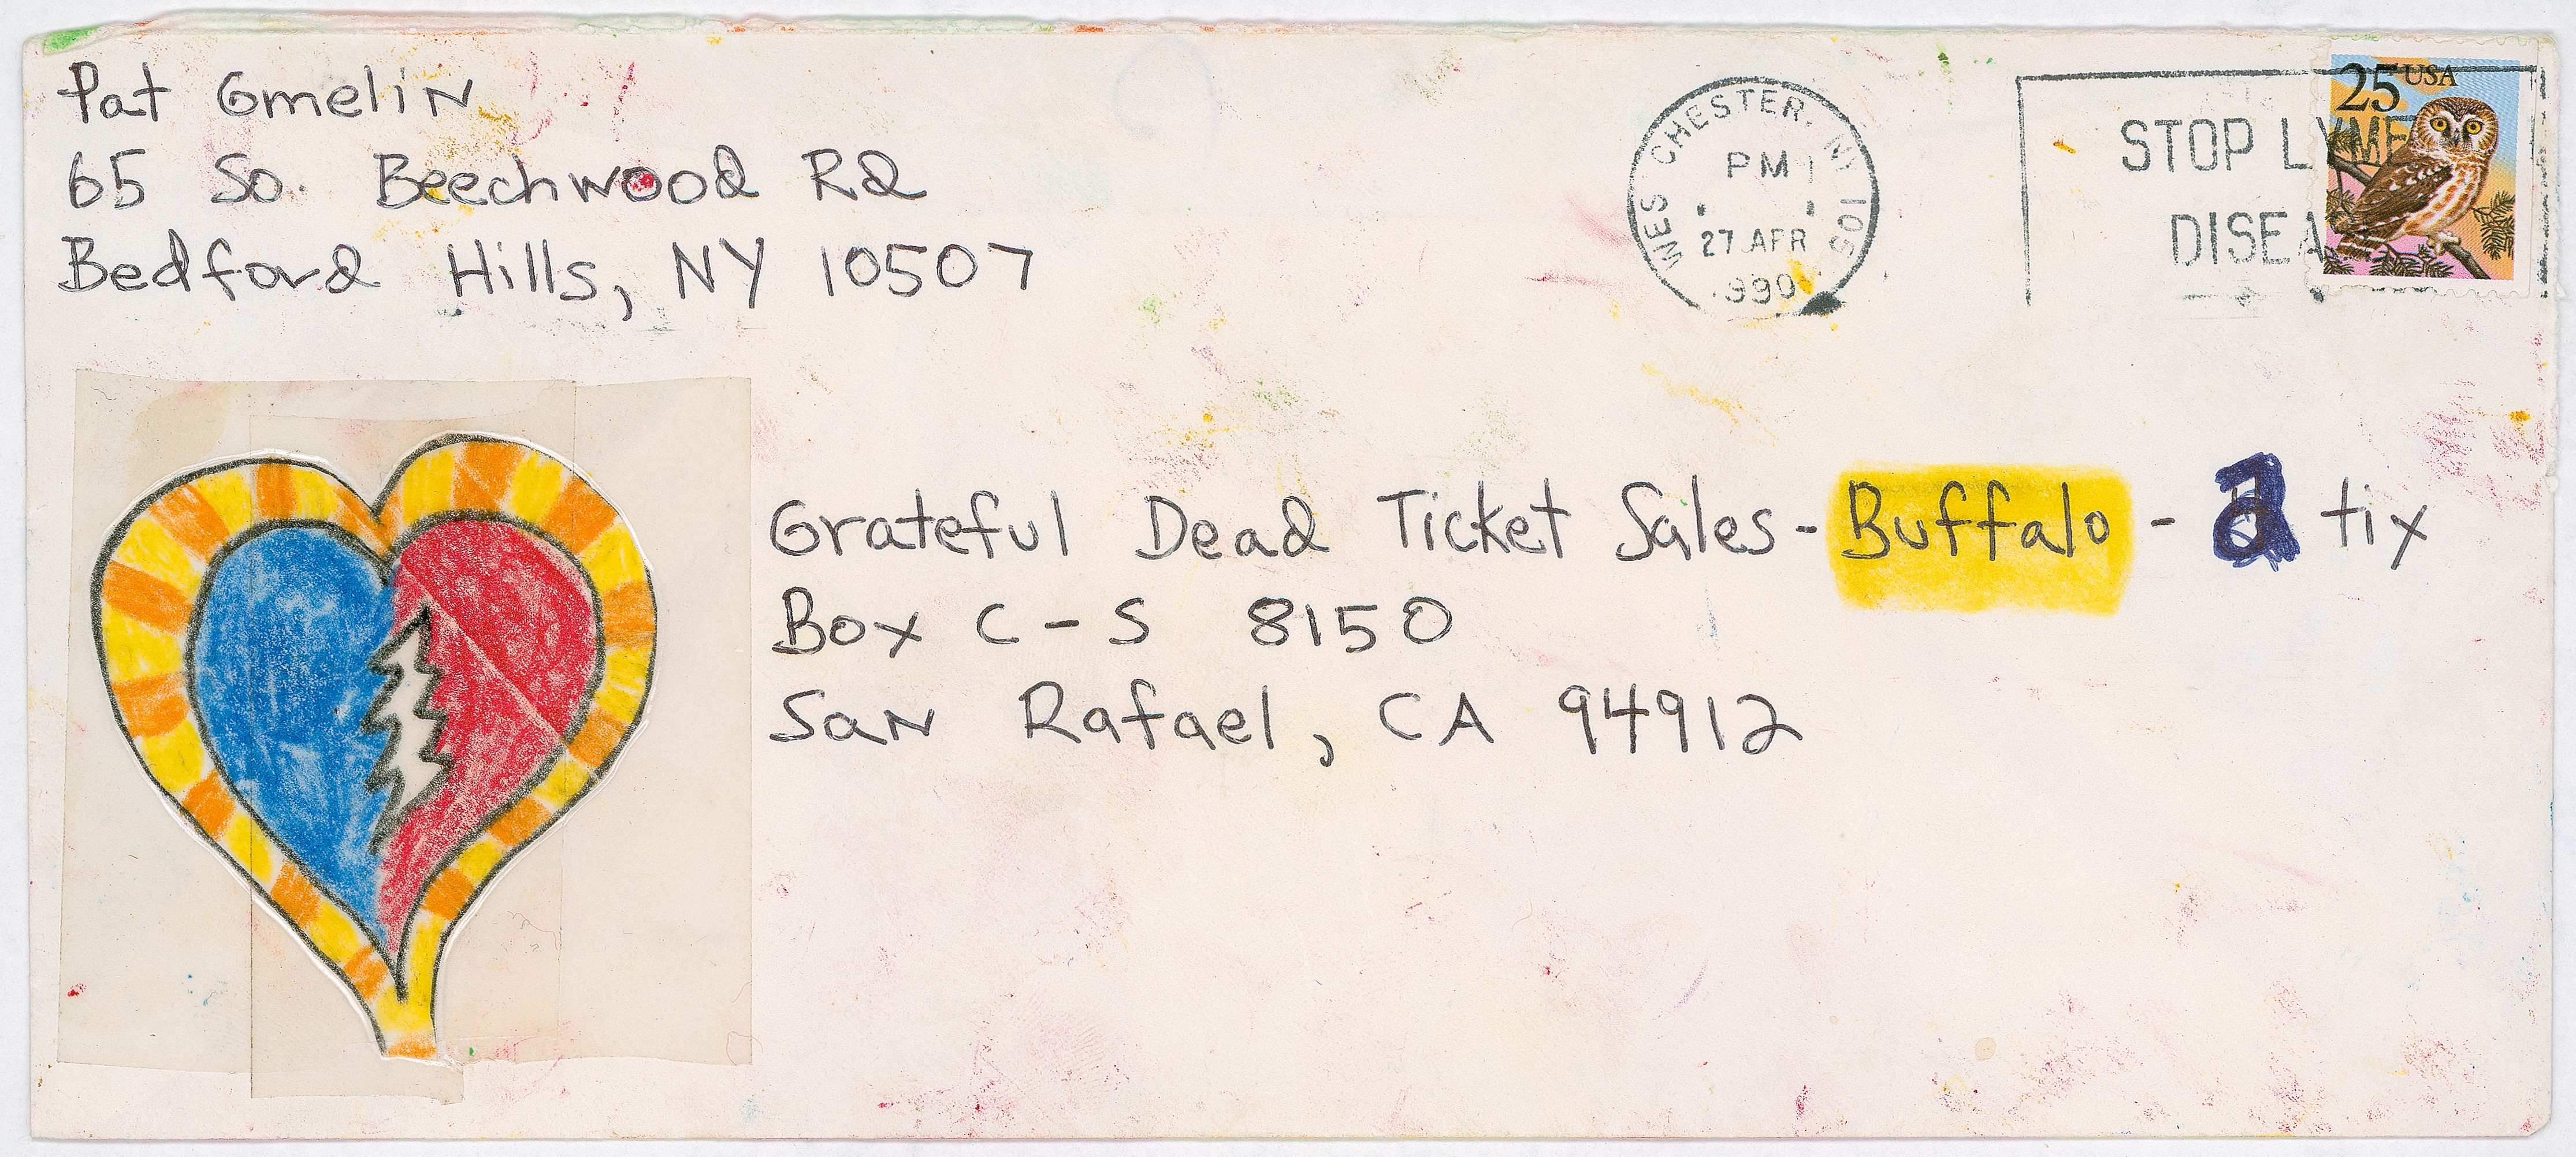 Pat Gmelin
65 So. Beechwood Rd
Bedford Hills, NY 10507
WESCHESTER, NY 105
PM
27 APR
1990
STOP LYME
DISEA
25 USA
Grateful Dead Ticket Sales - Buffalo - 2 tix
Box C-S 8150
San Rafael, CA 94912